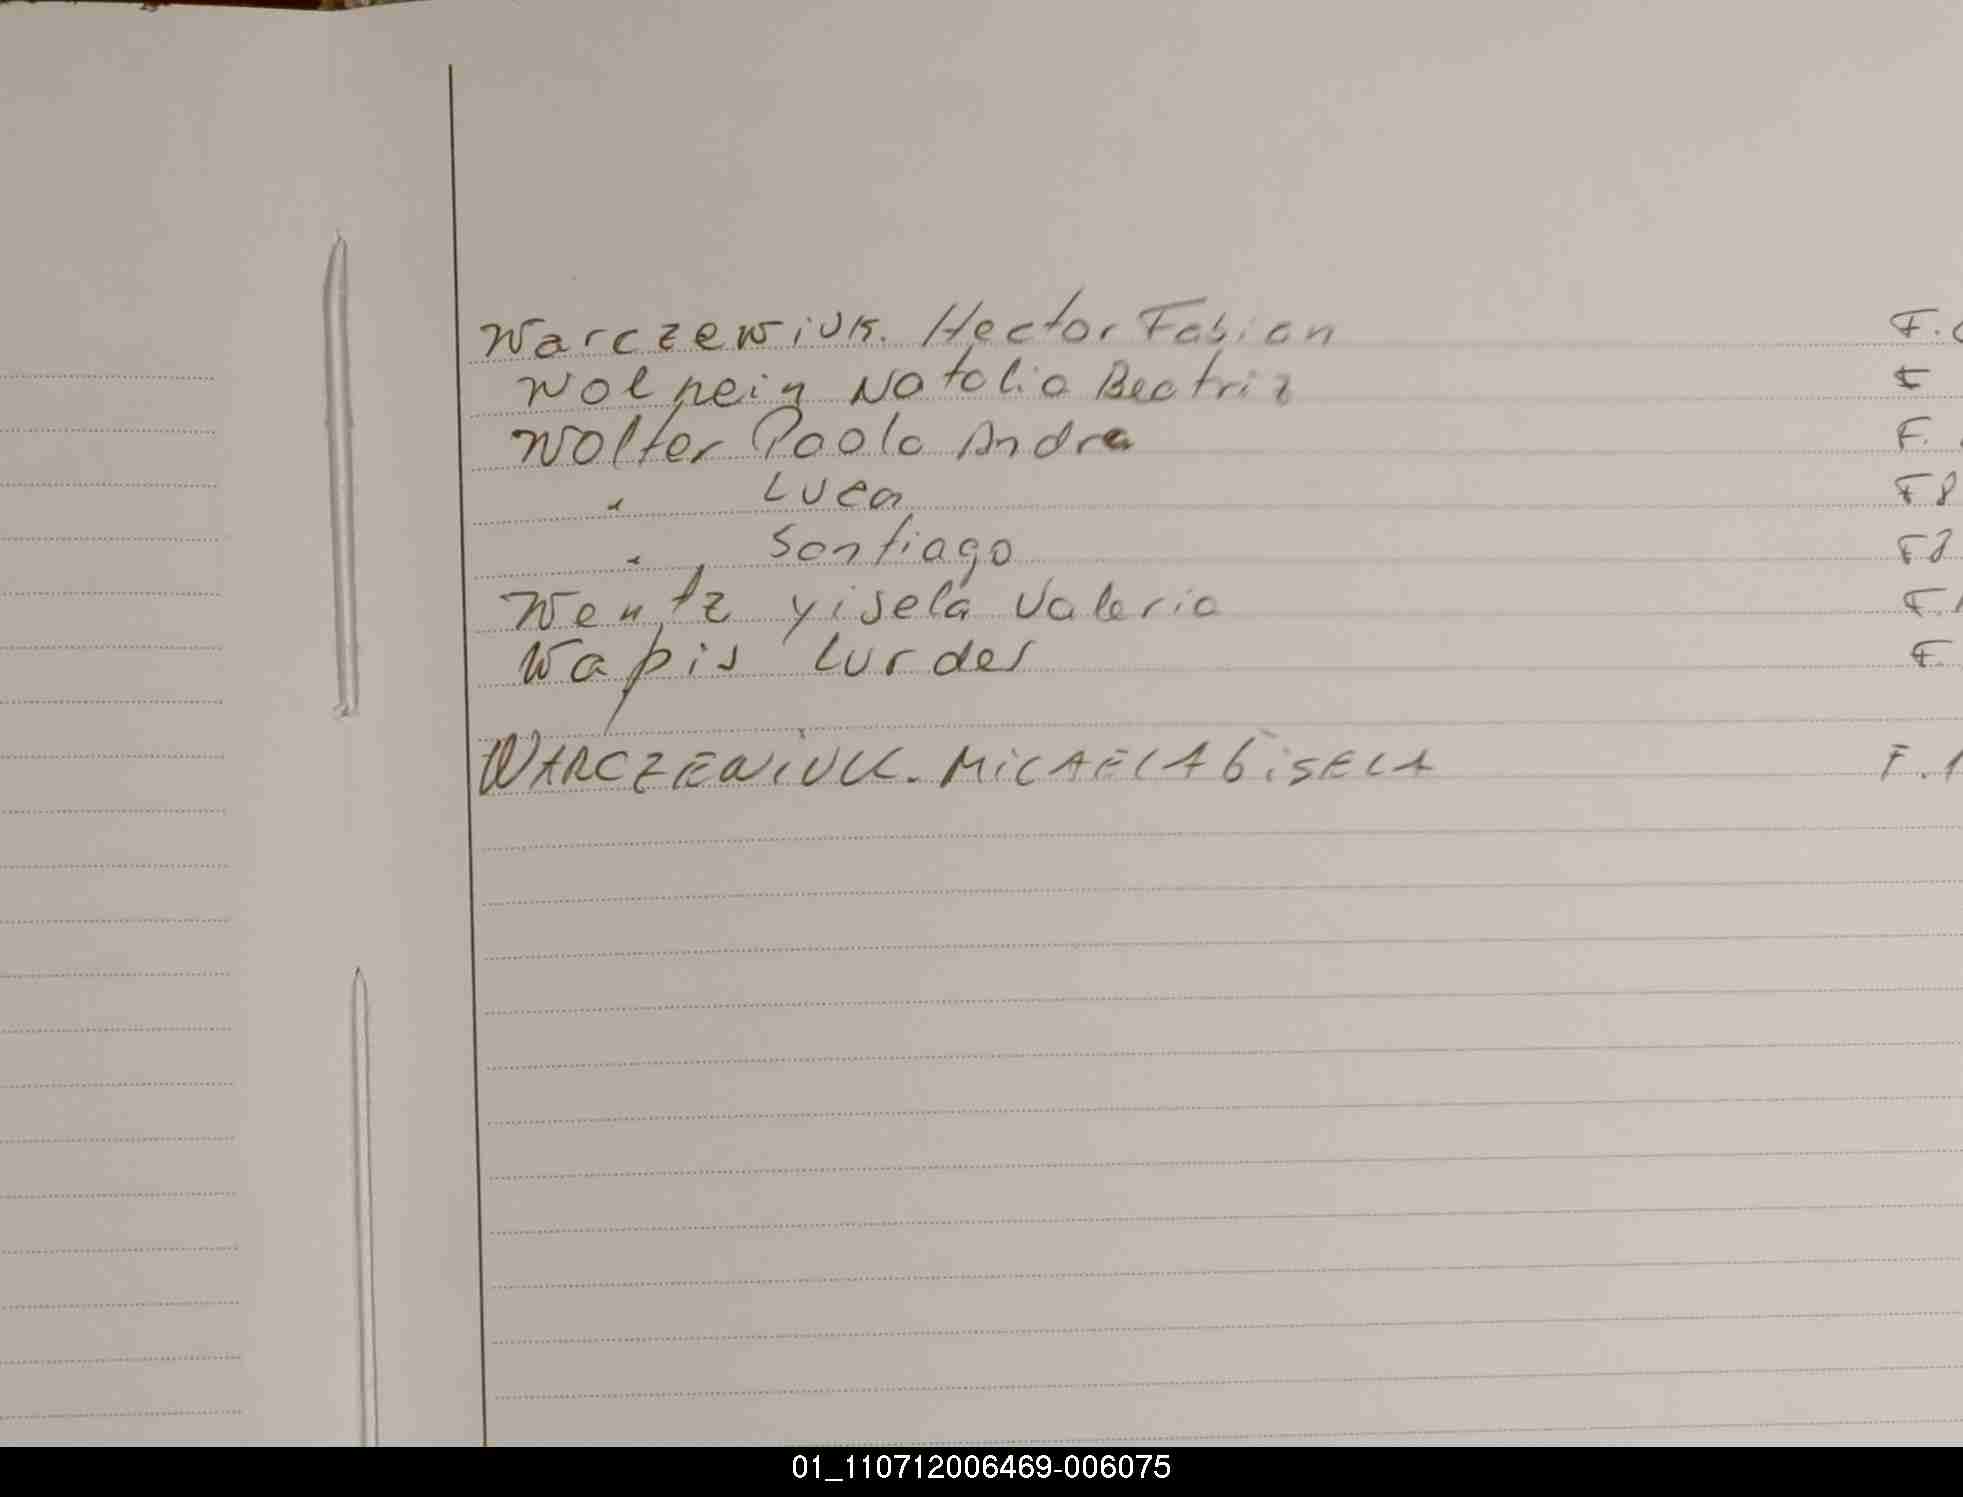 Warczewiuk. Hector Fabian F.
Wolhein Natalia Beatriz F
Wolter Paola Andra F.
" Luca F8
" Santiago F8
Wentz Yisela Valeria F.1
Wapis Lurdes F.
WARCZEWIUK. MICAELA GISELA F.1
01_110712006469-006075